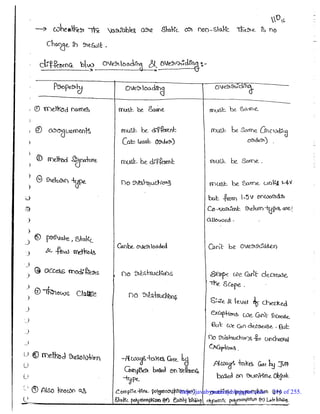 → whether the variables are static or non-static there is no
change in result.
difference b/w overloading & overriding:-
Property
overloading
overriding
① method names
must be Same
must be Same.
② arguments
must be different
(at least order)
must be Same (including
order)
③ method Signature
must be different
must be Same.
④ return type
no restrictions
must be same until 1.4V
but from 1.5V onwards
Co-variant return types are
allowed.
⑤ private, static
& final methods
Can be overloaded
Can't be overridden
⑥ access modifiers
no restrictions
we Can't decrease
The Scope.
⑦ Throws Clause
no restrictions
exceptions we Can't increase
But we Can decrease. But
no restrictions for unchecked
exceptions.
⑧ method resolution
Always takes Care by
Compiler based on reference
type.
Always takes Care by JVM
based on Runtime Object.
⑨ Also known as
static polymorphism (or) Early binding
dynamic polymorphism (or) Late binding
of 255.